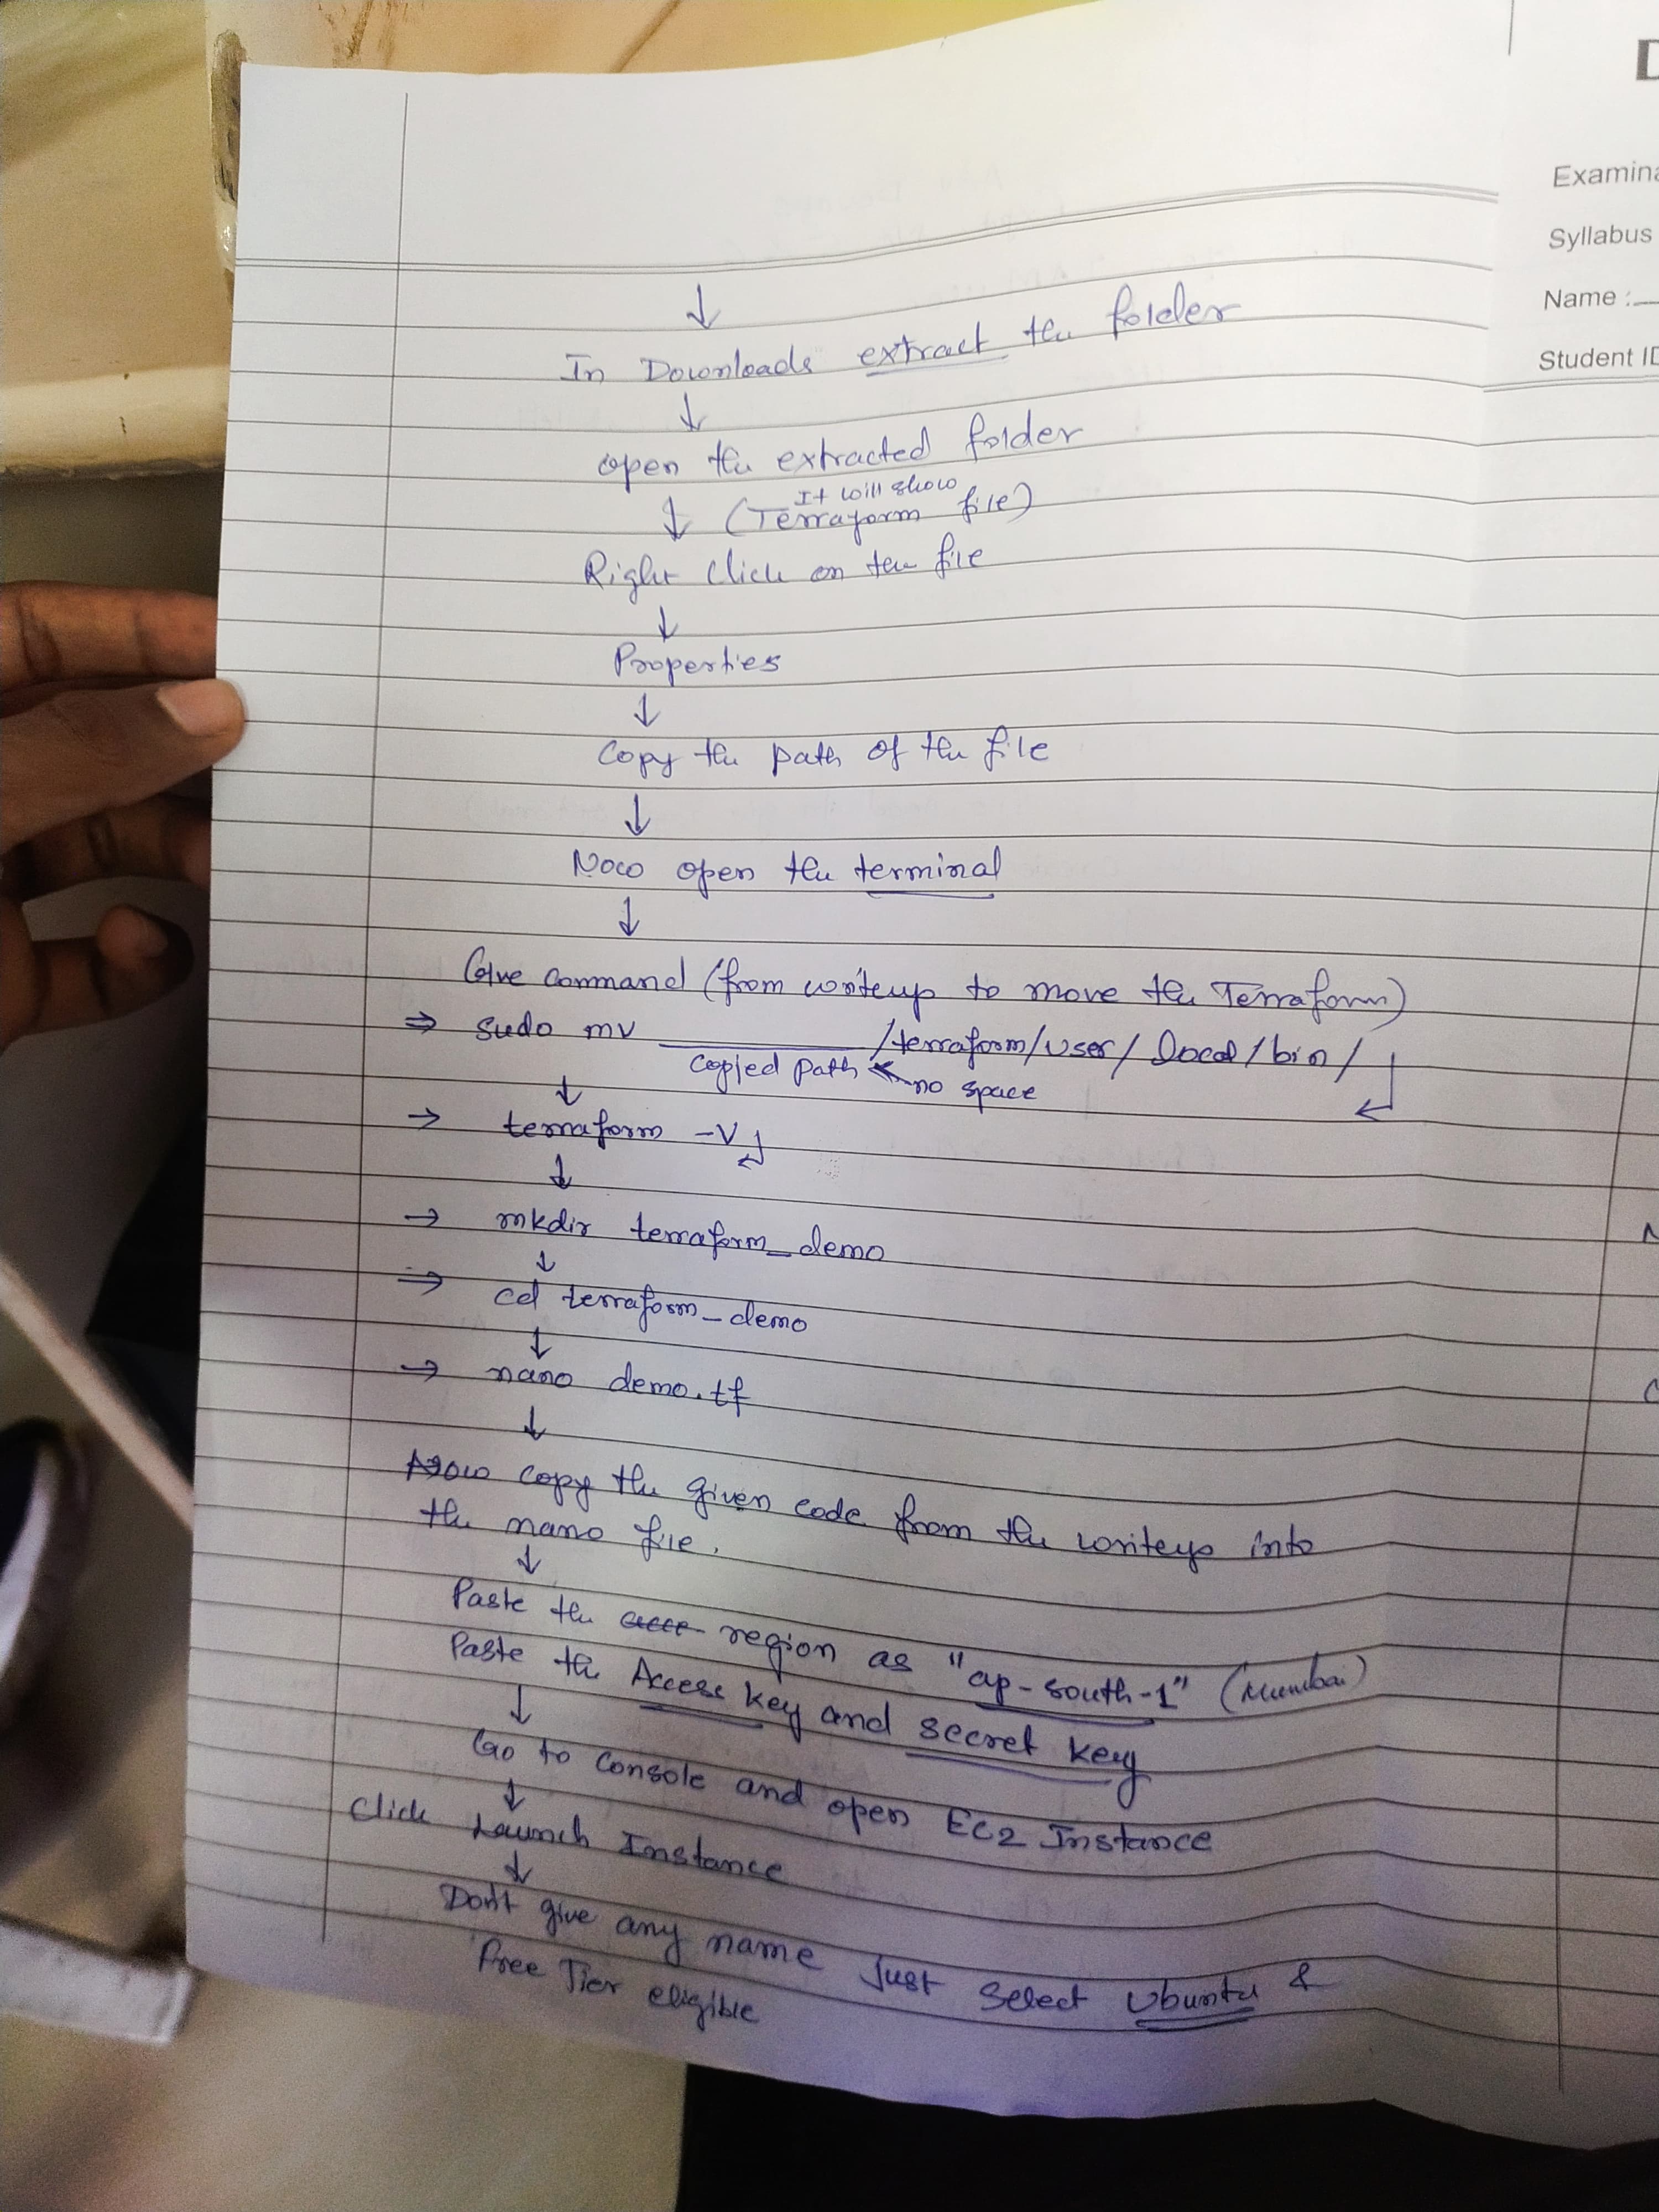 ↓
In Downloads extract the folder
↓
open the extracted folder
It will show
↓ (Terraform file)
Right Click on the file
↓
Properties
↓
Copy the path of the file
↓
Now open the terminal
↓
Give command (from writeup to move the Terraform)
⇒ sudo mv ________ /terraform/user/local/bin/ ↵
copied path ← no space
↓
→ terraform -v ↵
↓
→ mkdir terraform_demo
↓
⇒ cd terraform_demo
↓
→ nano demo.tf
↓
Now copy the given code from the writeup into
the nano file.
↓
Paste the region as "ap-south-1" (Mumbai)
Paste the Access key and secret key
↓
Go to Console and open EC2 Instance
↓
Click Launch Instance
↓
Don't give any name Just Select Ubuntu &
Free Tier eligible
D
Examina
Syllabus
Name :
Student ID